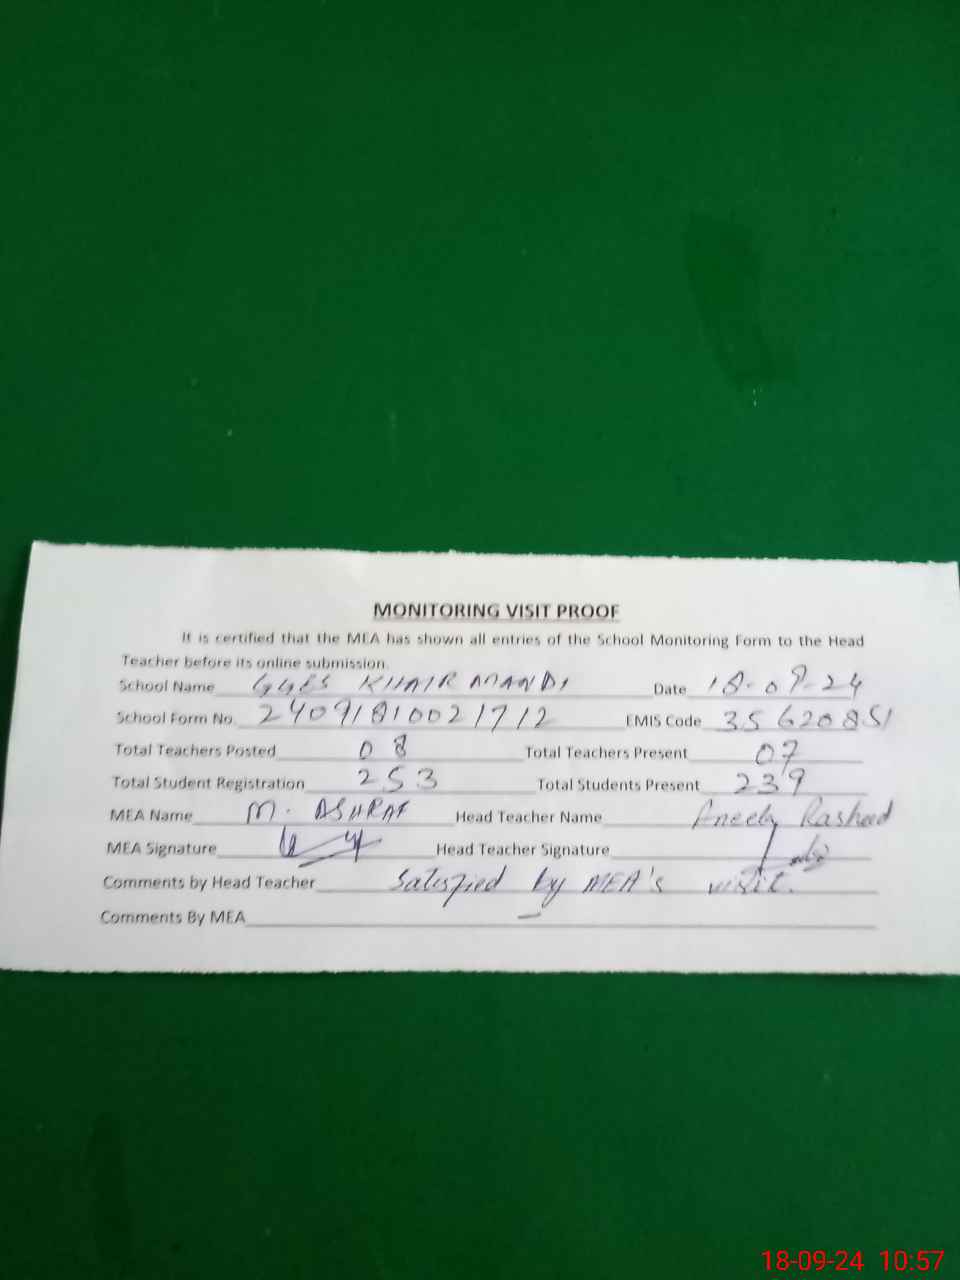 MONITORING VISIT PROOF
It is certified that the MEA has shown all entries of the School Monitoring Form to the Head
Teacher before its online submission.
School Name GGES KHAIR MANDI Date 18-09-24
School Form No. 24091810021712 EMIS Code 35620851
Total Teachers Posted 08 Total Teachers Present 07
Total Student Registration 253 Total Students Present 239
MEA Name M. ASHRAF Head Teacher Name Aneela Rasheed
MEA Signature Head Teacher Signature
Comments by Head Teacher Satisfied by MEA's visit.
Comments By MEA
18-09-24 10:57